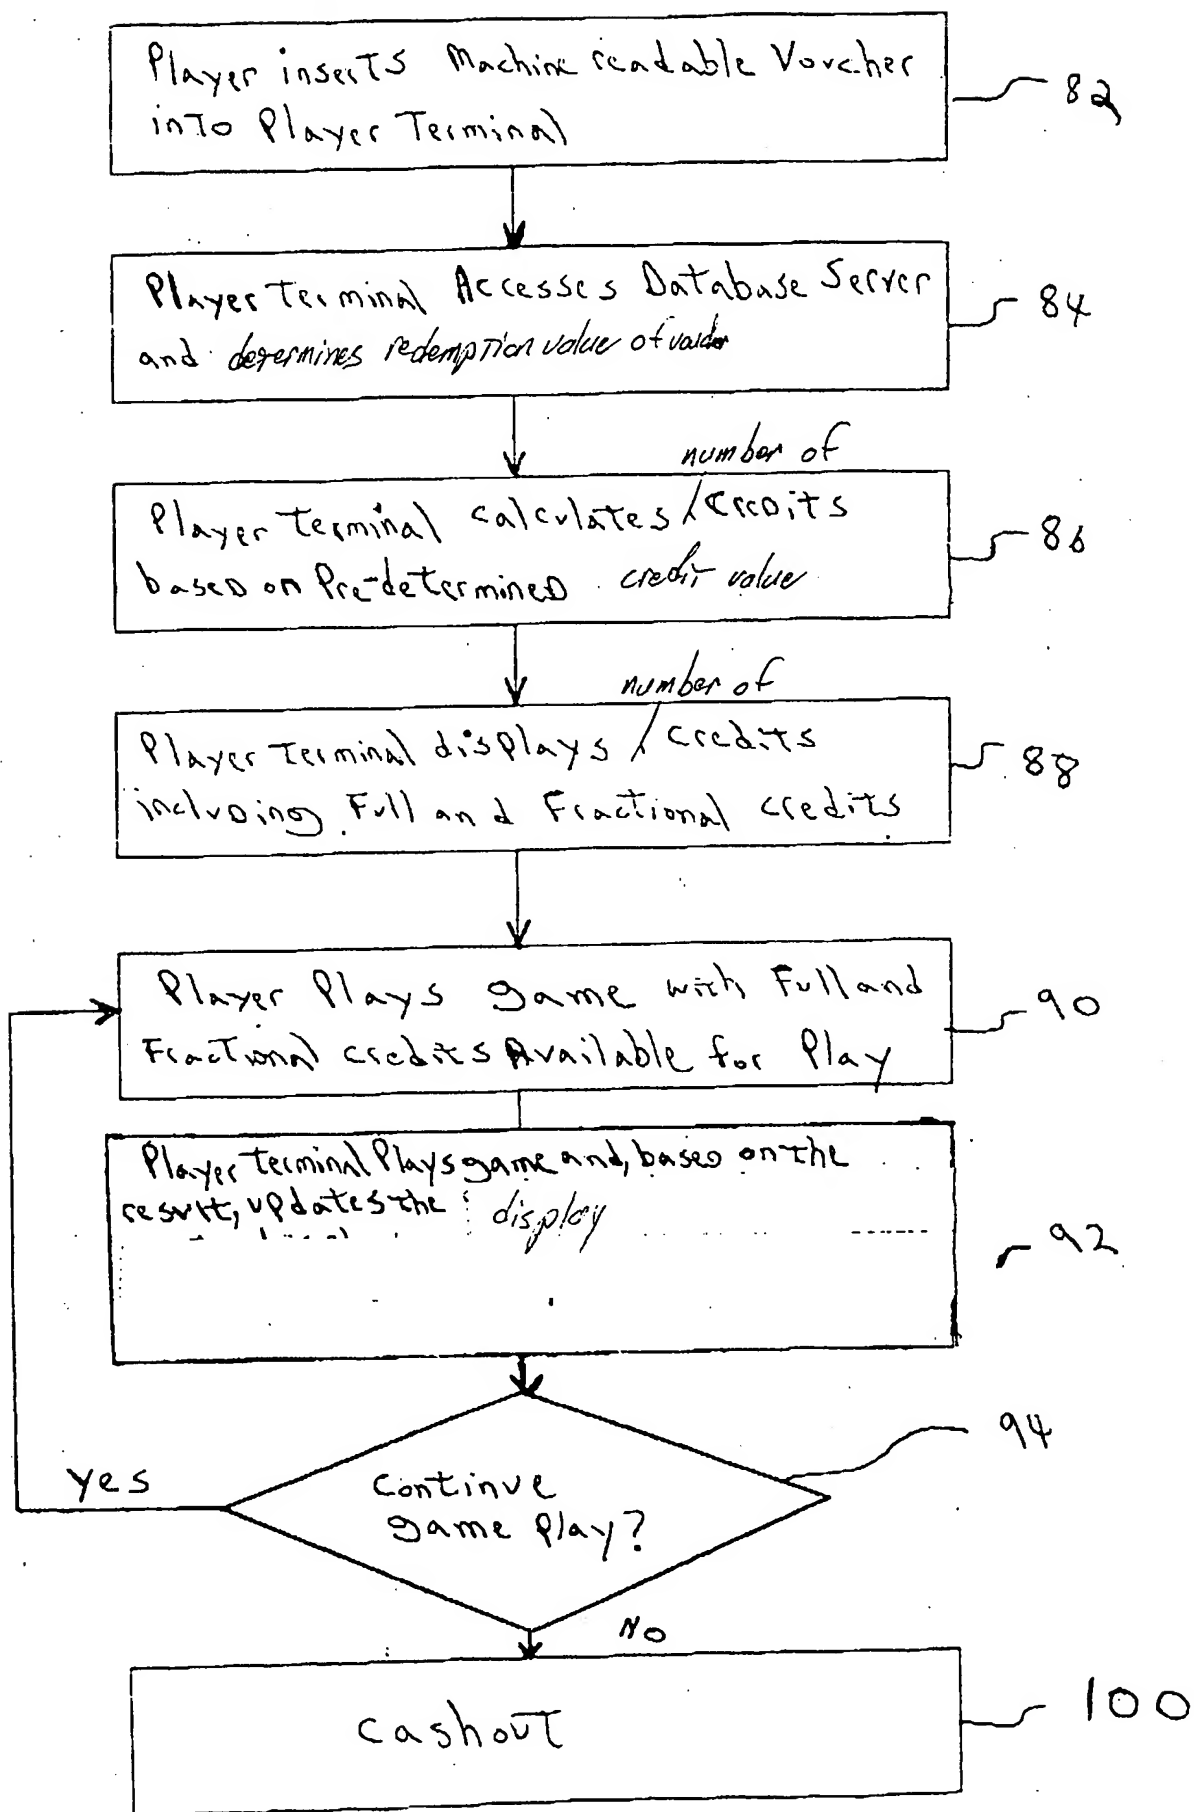 Player inserts Machine readable Voucher
into Player Terminal
82
Player Terminal Accesses Database Server
and determines redemption value of
84
number of
Player Terminal calculates / Credits
based on Pre-determined credit value
86
number of
Player Terminal displays / credits
including Full and Fractional credits
88
Player Plays game with Full and
Fractional credits Available for Play
90
Player terminal Plays game and, based on the
result, updates the display
92
Continue
game Play?
94
yes
No
Cashout
100